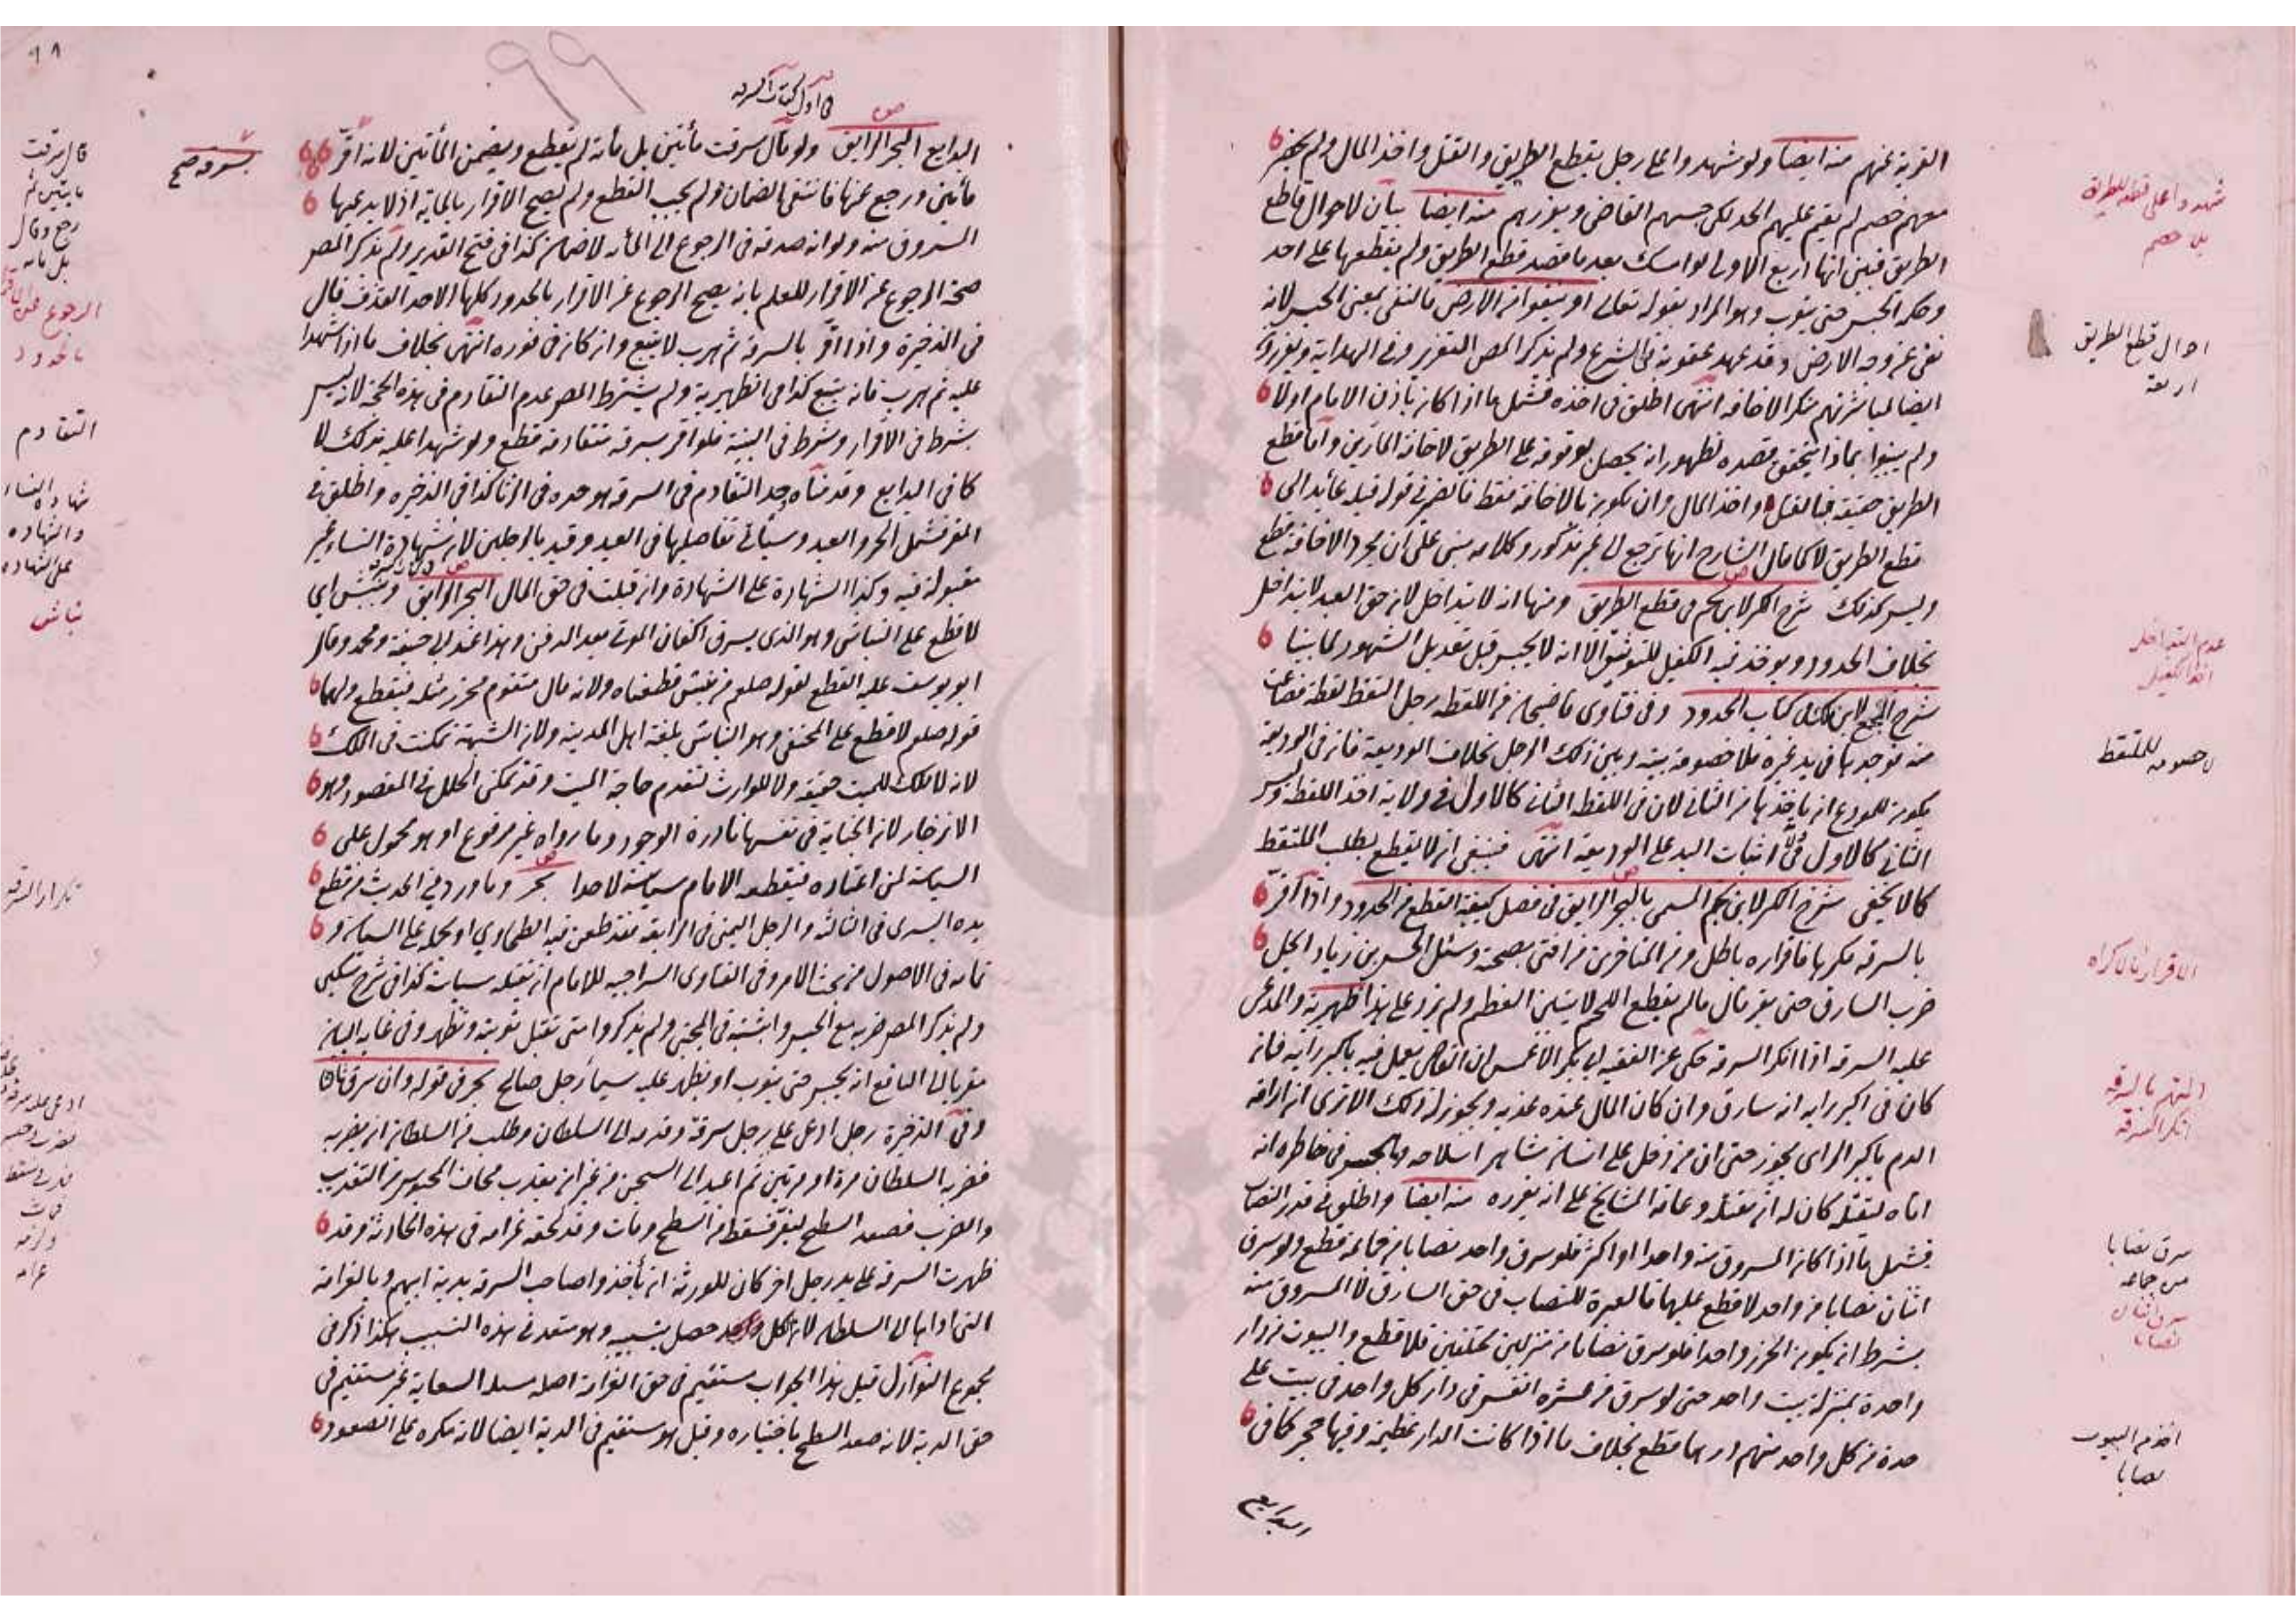 التوبة عنهم منه ايضا ولو شهدوا على رجل بقطع الطريق والقتل واخذ المال ولم يحضر
معهم خصم لم يقم عليهم الحد لكن حبسهم القاضي ويعزرهم منه ايضا بيان لاحوال قاطع
الطريق فبين انها اربع الاولى لو امسك بعد ما قصد قطع الطريق ولم يقطعها على احد
وحكمه الحبس حتى يتوب وهو المراد بقوله تعالى او ينفوا من الارض فالنفي بمعنى الحبس لانه
نفي عن وجه الارض وقد عهد عقوبة في الشرع ولم يذكر المص التعزير وفي الهداية ويعزرون
ايضا لمباشرتهم منكر الاخافة انتهى اطلق في اخذه فشمل ما اذا كان باذن الامام اولا
ولم يبينوا بماذا يتحقق قصده لظهور انه يحصل بوقوفه على الطريق لاخافة المارين واما قطع
الطريق حقيقة فبالقتل واخذ المال وان يكون بالاخافة فقط فالضمير في قوله قبله عائد الى
قطع الطريق لا كما قال الشارح انها ترجع الى غير مذكور وكلامه مبني على ان مجرد الاخافة قطع
وليس كذلك شرح الكنز لابن نجيم في قطع الطريق ومنها انه لا يتداخل لان حق العبد لا يتداخل
بخلاف الحدود ويؤخذ فيه الكفيل للتوثيق الا انه لا يحبس قبل تعديل الشهود لما بينا
شرح المجمع لابن ملك كتاب الحدود وفي فتاوى قاضيخان من اللقطة رجل التقط لقطة فضاعت
منه فوجدها في يد غيره فلا خصومة بينه وبين ذلك الرجل بخلاف الوديعة فان في الوديعة
يكون للمودع ان ياخذها من الثاني لان في اللقطة الثاني كالاول في ولاية اخذ اللقطة وليس
الثاني كالاول في اثبات اليد على الوديعة انتهى فينبغي ان لا يقطع بطلب الملتقط
كما لا يخفى شرح الكنز لابن نجيم المسمى بالبحر الرايق في فصل كيفية القطع من الحدود واذا اقر
بالسرقة مكرها فاقراره باطل ومن المتاخرين من افتى بصحته وسئل الحسن بن زياد ايحل
ضرب السارق حتى يقر قال ما لم يقطع اللحم لا يتبين العظم ولم يزد على هذا ظهيرية والمدعى
عليه السرقة اذا انكر السرقة حكي عن الفقيه ابي بكر الاعمش ان القاضي يعمل فيه باكبر رايه فان
كان في اكبر رايه انه سارق وان كان المال عنده عذبه ويجوز له ذلك الا ترى ان اراقة
الدم باكبر الراي يجوز حتى ان من دخل على انسان شاهر اسلاحه في خاطره انه
اتاه ليقتله كان له ان يقتله وعامة المشايخ على انه يعزره منه ايضا واطلق في قدر النصاب
فشمل ما اذا كان المسروق منه واحدا او اكثر فلو سرق واحد نصابا من جماعة قطع ولو سرق
اثنان نصابا من واحد لا قطع عليهما فالعبرة للنصاب في حق السارق لا المسروق منه
بشرط ان يكون الحرز واحدا فلو سرق نصابا من منزلين مختلفين فلا قطع والبيوت من دار
واحدة بمنزلة بيت واحد حتى لو سرق من عشرة انفس في دار كل واحد في بيت على
حدة من كل واحد منهم درهما قطع بخلاف ما اذا كانت الدار عظيمة وفيها حجر كما في
البدايع
شهدوا على قطع الطريق
بلا خصم
احوال قطع الطريق
اربعة
عدم التداخل
اخذ الكفيل
لا خصومة للملتقط
الاقرار بالاكراه
المتهم بالسرقة
انكر السرقة
سرق نصابا
من جماعة
سرق اثنان
نصابا
اخذ من البيوت
نصابا
٩٨
99
في اول كتاب السرقة
البدايع البحر الرايق ولو قال سرقت مأتين بل مأة لم يقطع ويضمن المأتين لانه اقر
مأتين ورجع عنها فانتفى الضمان ولم يجب القطع ولم يصح الاقرار بالماية اذ لا يدعيها
المسروق منه ولو انه صدقه في الرجوع الى المأة لا ضمان كذا في فتح القدير ولم يذكر المصر
صحة الرجوع عن الاقرار للعلم بانه يصح الرجوع عن الاقرار بالحدود كلها الا حد القذف قال
في الذخيرة واذا اقر بالسرقة ثم هرب لا يتبع وان كان في فوره انتهى بخلاف ما اذا شهدا
عليه ثم هرب فانه يتبع كذا في الظهيرية ولم يشترط المصر عدم التقادم في هذه الحجة لانه ليس
بشرط في الاقرار وشرط في البينة فلو اقر بسرقة متقادمة قطع ولو شهدا عليه بذلك لا
كما في البدايع وقدمناه حد التقادم في السرقة هو حده في الزنا كذا في الذخيرة واطلق في
المقر فشمل الحر والعبد وسيأتي تفاصيلها في العبد وقيد بالرجلين لان شهادة النساء غير
مقبولة فيه وكذا الشهادة على الشهادة وان قبلت في حق المال البحر الرايق ونبش اي
لا قطع على النباش وهو الذي يسرق اكفان الموتى بعد الدفن وهذا عند ابي حنيفة ومحمد وقال
ابو يوسف عليه القطع لقوله صلعم من نبش قطعناه ولانه مال متقوم محرز مثله فيقطع ولهما
قوله صلعم لا قطع على المختفي وهو النباش بلغة اهل المدينة ولان الشبهة تمكنت في الملك
لانه لا ملك للميت حقيقة ولا للوارث لتقدم حاجة الميت وقد تمكن الخلل في المقصود وهو
الانزجار لان الجناية في نفسها نادرة الوجود وما رواه غير مرفوع او هو محمول على
السياسة لمن اعتاده فيقطعه الامام سياسة لا حدا بحر وما ورد في الحديث من قطع
يده اليسرى في الثالثة والرجل اليمنى في الرابعة فقد طعن فيه الطحاوي او نحمله على السياسة و
تمامه في الاصول من بحث الامر وفي الفتاوى السراجية للامام ان يقتله سياسة كذا في شرح مسكين
ولم يذكر المصر ضربه مع الحبس واثبته في المجتبى ولم يذكروا متى تقبل توبته وتظهر وفي غاية البيان
معزيا الى النافع انه يحبس حتى يتوب او يظهر عليه سيما رجل صالح بحر في قوله وان سرق ثالثا
وفي الذخيرة رجل ادعى على رجل سرقة وقدمه الى السلطان وطلب من السلطان ان يضربه
فضربه السلطان مرة او مرتين ثم اعيد الى السجن من غير ان يعذب فخاف المحبوس من التعذيب
والضرب فصعد السطح ليفر فسقط من السطح ومات وقد لحقه غرامة في هذه الحادثة وقد
ظهرت السرقة على يد رجل اخر كان للورثة ان يأخذوا صاحب السرقة بدية ابيهم وبالغرامة
التي اداها الى السلطان لان الكل حصل بسببه وهو متعد في هذه التسبب هكذا ذكر في
مجموع النوازل قيل هذا الجواب مستقيم في حق الغرامة اصله مسئلة السعاية غير مستقيم في
حق الدية لانه صعد السطح باختياره وقيل هو مستقيم في الدية ايضا لانه مكره على الصعود
قال سرقت
مايتين ثم
رجع وقال
بل مائة
الرجوع عن الاقرار
بالحدود
التقادم
شهادة النساء
والشهادة
على الشهادة
نباش
تكرار السرقة